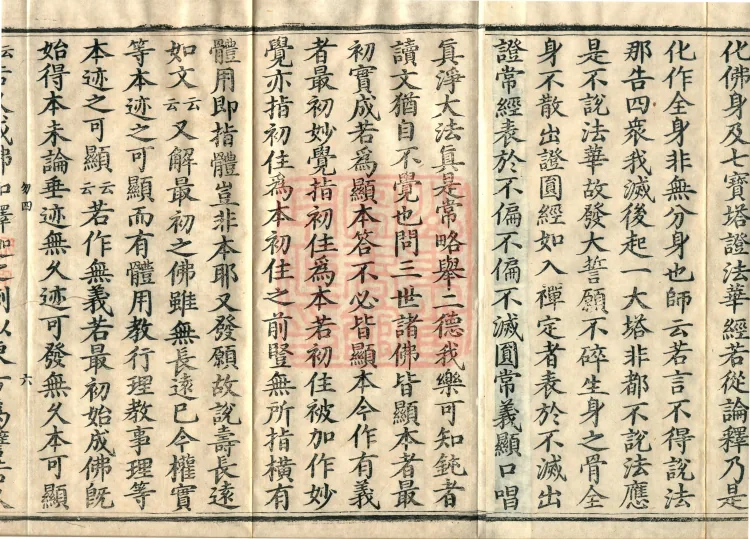 化佛身及七寶塔證法華經若從論釋乃是
化作全身非無分身也師云若言不得說法
那告四衆我滅後起一大塔非都不說法應
是不說法華故發大誓願不碎生身之骨全
身不散出證圓經如入禪定者表於不滅出
證常經表於不偏不偏不滅圓常義顯口唱
眞淨大法眞是常略舉二德我樂可知鈍者
讀文猶自不覺也問三世諸佛皆顯本者最
初實成若爲顯本答不必皆顯本今作有義
者最初妙覺指初住爲本若初住被加作妙
覺亦指初住爲本初住之前竪無所指橫有
體用即指體豈非本耶又發願故說壽長遠
如文云云又解最初之佛雖無長遠已今權實
等本迹之可顯而有體用教行理教事理等
本迹之可顯云云若作無義若最初始成佛旣
始得本未論垂迹無久迹可發無久本可顯
勿四
六